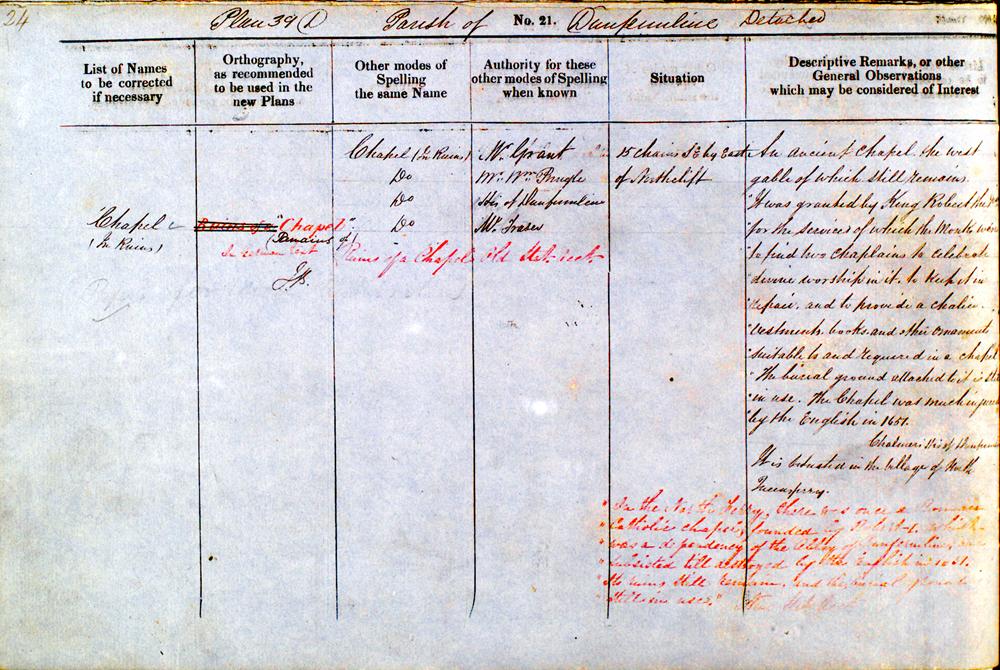 24
Plan 39 D Parish of No. 21. Dunfermline Detached
List of Names to be corrected if necessary
Orthography, as recommended to be used in the new Plans
Other modes of Spelling the same Name
Authority for these other modes of Spelling when known
Situation
Descriptive Remarks, or other General Observations which may be considered of Interest
Chapel
(In Ruins)
Ruins of a "Chapel"
(Remains of)
In German text
Chapel (In Ruins)
Do
Do
Do
Ruins of a Chapel
Mr. Grant
Mr. Wm. Pringle
His. of Dunfermline
Mr. Fraser
Old Stat. Acct.
15 chains SE by East
of Northcliff
An ancient Chapel the west
gable of which still remains.
"It was granted by King Robert the
"for the services of which the Monks were
"to find two Chaplains to celebrate
"divine worship in it. to keep it in
"repair. and to provide a chalice.
"vestments. books. and other ornaments
"suitable to and required in a chapel
"The burial ground attached to it is still
"in use. The Chapel was much injured
"by the English in 1651.
Chalmers His of Dunfermline
It is situated in the Village of North
Queensferry.
"In the North Ferry, there was once a Roman
"Catholic chapel, founded by Robert I. which
"was a dependency of the Abbey of Dunfermline, and
"subsisted till destroyed by the English in 1651.
"Its ruins still remain, and the burial ground
"still in use."